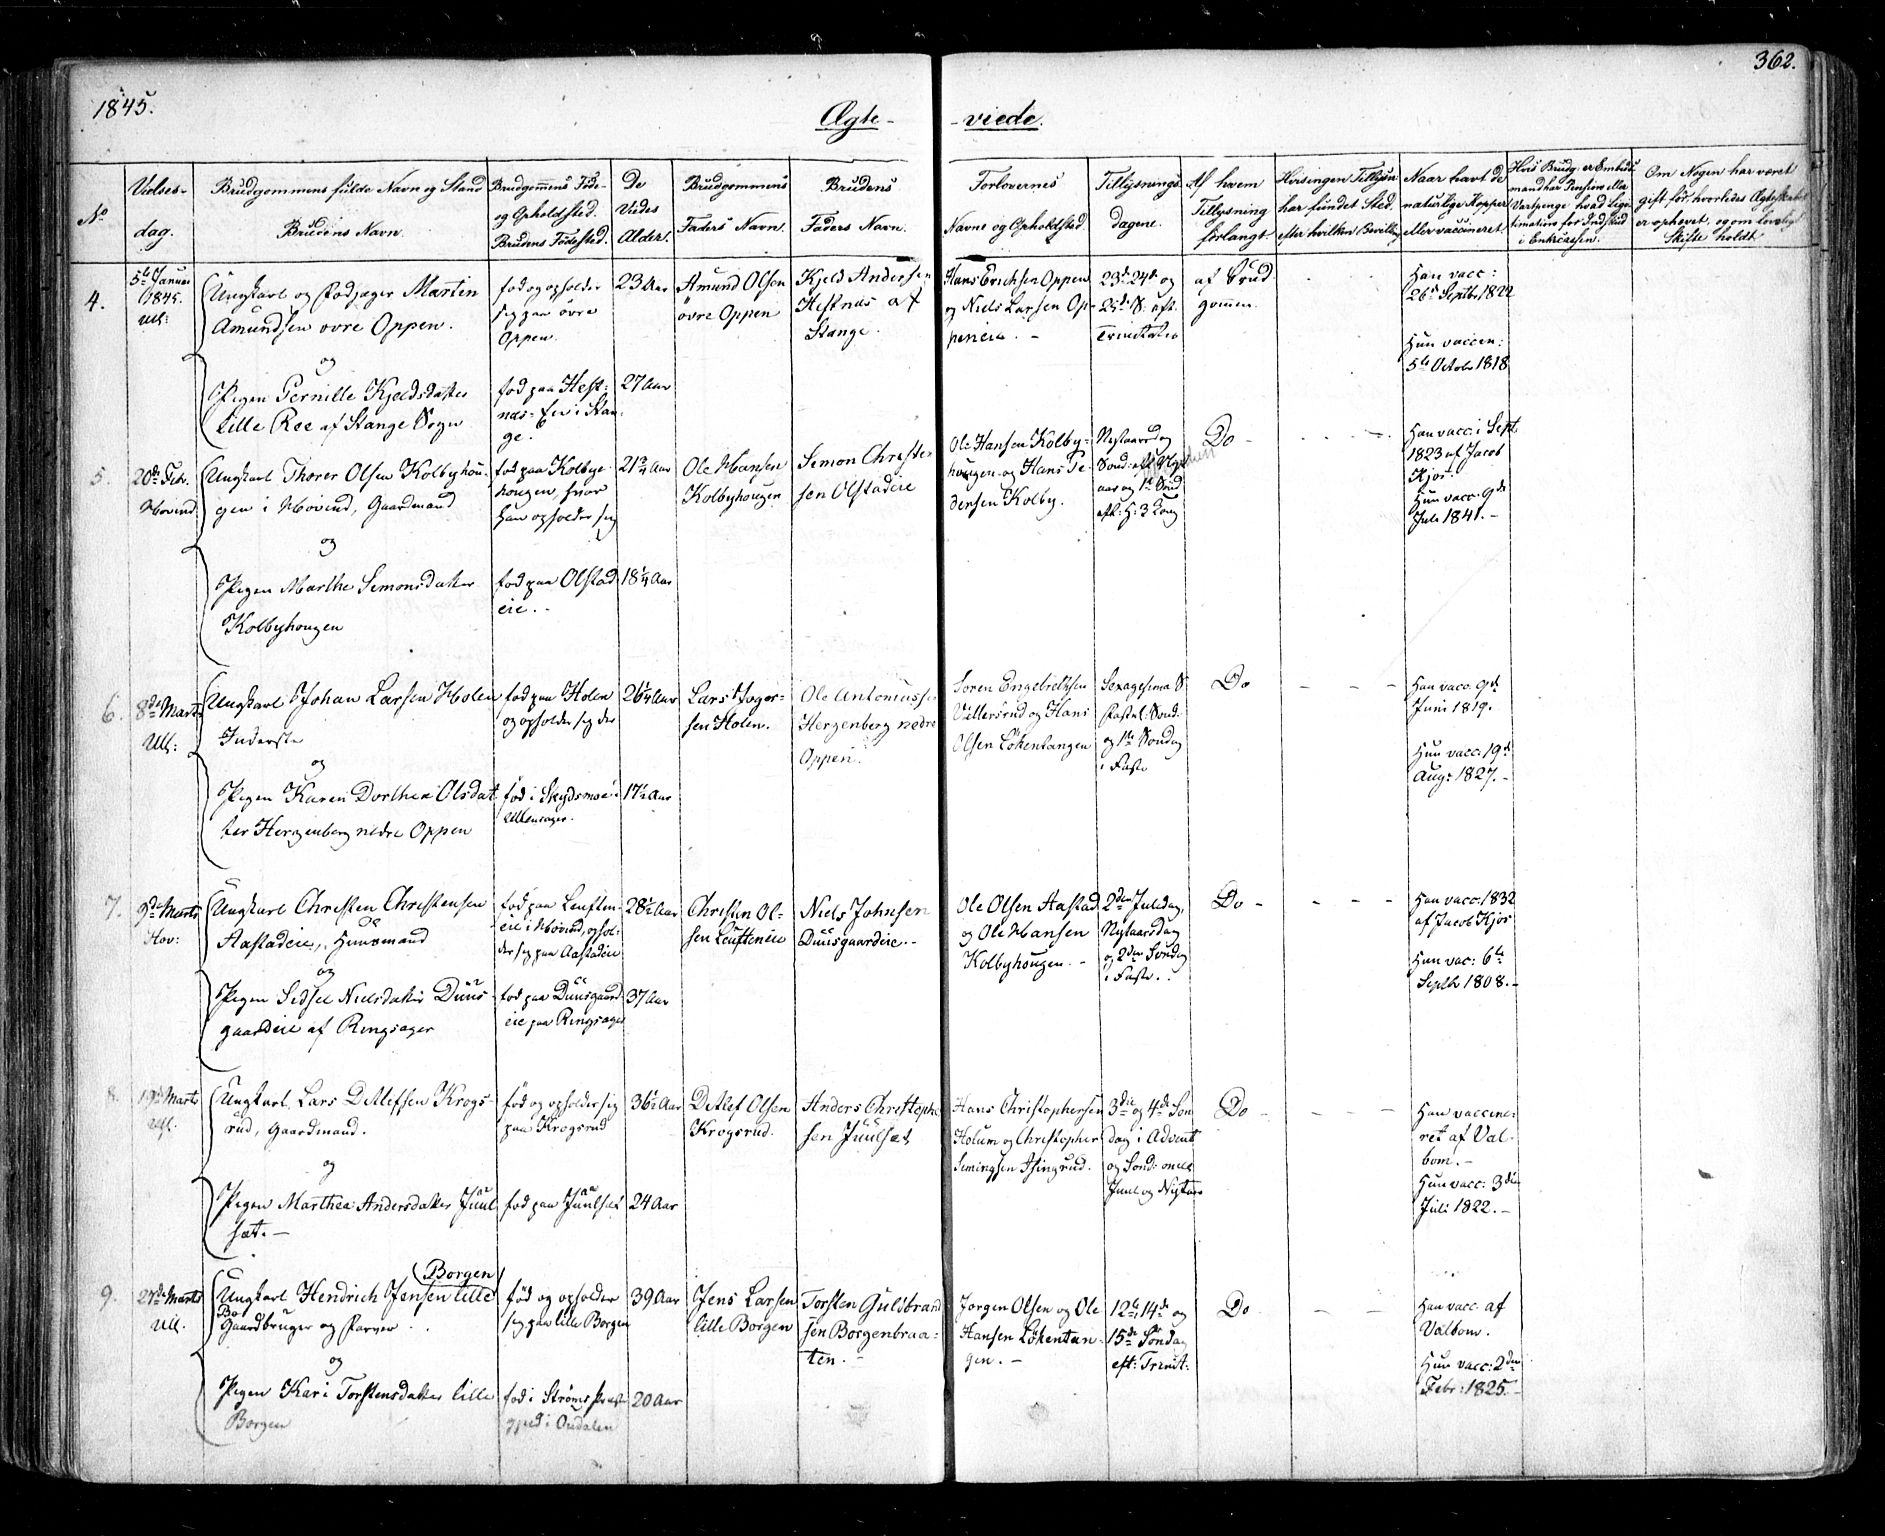 1845.
362.
Ægte-
-viede.
No
Vielses-
dag.
Brudgommens fulde Navn og Stand
Brudens Navn.
Brudgommens Føde-
og Opholdsted.
Brudens Fødested.
De
Viedes
Alder.
Brudgommens
Faders Navn.
Brudens
Faders Navn.
Forlovernes
Navne og Opholdsted.
Tillysnings
dagene.
Af hvem
Tillysning
forlangt.
Hvis ingen Tillysn
har fundet Sted,
efter hvilken Bevilling
Naar havt de
naturlige Kopper
eller vaccineret
Hvis Brudg. er Embeds
mand har Pension eller
Vartpenge hvad Legi-
timation for Indskud
i Enkecassen.
Om Nogen har været
gift før, hvorledes Ægteskabet
er ophævet, og om lovlig
Skifte holdt
4.
5te Januar
1845.
Ull:
Ungkarl og Fodjæger Martin
Amundsen øvre Oppen.
og
Pigen Pernille Kjeldsdatter
Lille Ree af Stange Sogn
fød og opholder
sig paa øvre
Oppen.
fød paa Hest-
næs-Eie i Stan-
ge.
23 Aar
27 Aar
Amund Olsen
øvre Oppen
Kjeld Andersen
Hestnæs af
Stange.
Hans Erichsen Oppen
og Niels Larsen Op-
peneie. -
23de 24de og
25de S. eft.
Trinitatis
af Brud
gommen.
Han vacc:
26de Septbr. 1822
Hun vaccin:
5te Octobr 1818
5.
20de Feb.
Hovind
Ungkarl Thorer Olsen Kolbyhou-
gen i Hovind, Gaardmand
og
Pigen Marthe Simonsdatter
Kolbyhougen
fød paa Kolbye-
hougen, hvor
han opholder sig
fød paa Olstad
eie..
21 3/4 Aar
18 1/4 Aar
Ole Hansen
Kolbyhougen
Simon Christen
sen Olstadeie
Ole Hansen Kolby-
hougen og Hans Pe-
dersen Kolby.
Nytaarsdag
Sønd: eft. Nyt
aar og 1ste Sønd
eft: H: 3 Kong
Do -
Han vacc. i Sept
1823 af Jacob
Kjos.
Hun vacc. 9de
Juli 1841. -
6.
8de Marts
Ull:
Ungkarl Johan Larsen Holen
Inderste
og
Pigen Karen Dorthea Olsdat
ter Hergenberg nedre Oppen
fød paa Holen
og opholder sig der
fød i Skydsmoe i
Ullensager.
26 1/4 Aar
17 1/2 Aar
Lars Inger-
sen Holen.
Ole Antoniusse
Hergenberg nedre
Oppen.
Søren Engebrethsen
Villersrud og Hans
Olsen Løkentangen
Sexagesima S
Fastel: Sønd.
og 1ste Søndag
i Faste
Do
Han vacc. 9de
Juni 1819.
Hun vacc. 19de
Aug: 1827. -
7.
9de Marts
Hov:
Ungkarl Christen Christensen
Aastadeie, Huusmand
og
Pigen Sidsel Nielsdatter Duus-
gaardeie af Ringsager
fød paa Leuften-
eie i Hovind, ophol-
der sig paa Aastadeie
fød paa Duusgaard-
eie paa Ringsager
28 1/2 Aar
37 Aar
Christen Ol-
sen Leufteneie
Niels Johnsen
Duusgaardeie. -
Ole Olsen Aastad
og Ole Hansen
Kolbyhougen. -
2den Juledag,
Nytaarsdag
og 2den Søndag
i Faste..
Do -
Han vacc. 1832
af Jacob Kjos
Hun vac: 6te
Septbr 1808. -
8.
19de Marts
Ull.
Ungkarl Lars Detlefsen Krogs-
rud, Gaardmand.
og
Pigen Marthea Andersdatter Juul
sæt. -
fød og opholder sig
paa Krogsrud
fød paa Juulsæt
36 1/2 Aar
24 Aar
Detlef Olsen
Krogsrud.
Anders Christophe
sen Juulsæt
Hans Christophersen
Holum og Christopher
Semingsen Asingrud.
3die og 4de Søn
dag i Advent
og Sønd: mell
Juul og Nytaar
Do -
Han vaccine-
ret af Val-
bom. -
Hun vacc: 3die
Juli 1822. -
9.
27de Marts
Ull.
(Borgen)
Ungkarl Hendrich Jensen Lille
Bo
Gaardbruger og Farver . .
og
Pigen Kari Torstensdatter Lille
Borgen
fød og opholder
sig paa Lille Borgen
fød i Strøms Præste
gjeld i Oudalen
39 Aar
20 Aar
Jens Larsen
Lille Borgen
Torsten Guldbrand
sen Borgenbraa-
ten. -
Jørgen Olsen og Ole
Hansen Løkentan-
gen. -
12te, 14de og
15de Søndag
eft: Trinit:
Do
Han vacc. af
Valbom.
Hun vacc: 2den
Febr: 1825. -